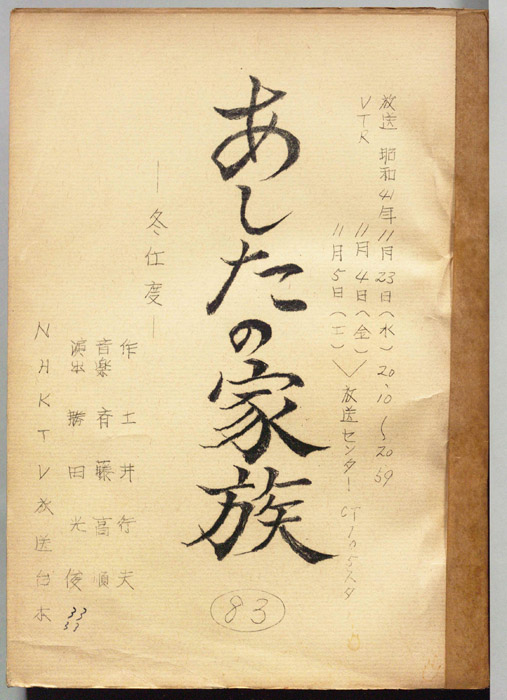 放送 昭和41年11月23日(水)20.10~20.59
VTR 11月4日(金)
11月5日(土)
放送センター CT
あしたの家族
83
―冬仕度―
作 土井行夫
音楽 斉藤高順
演出 勝田光俊
NHKTV放送台本